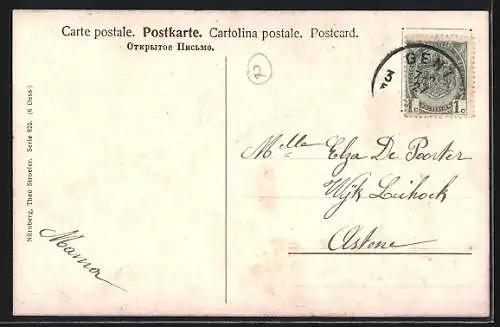 Carte postale. Postkarte. Cartolina postale. Postcard.
Открытое Письмо.
2
GENT
1c 1c
Mlle Elza De Poorter
Wijk
Astene
Mama
Nürnberg, Theo Stroefer. Serie 822. (6 Dess.)